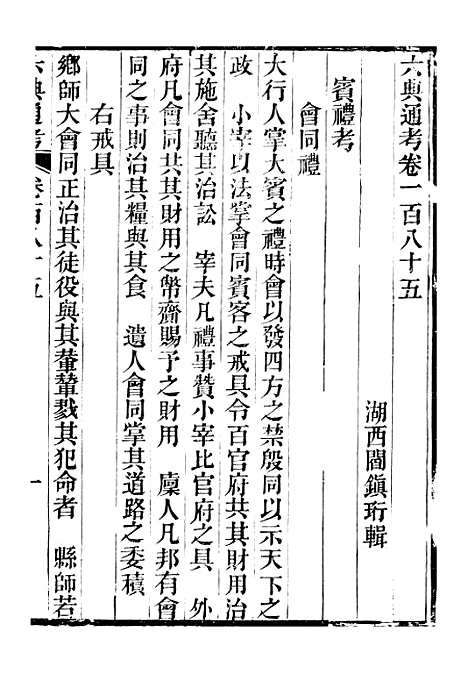 六典通考卷一百八十五
湖西閻鎮珩輯
賓禮考
會同禮
大行人掌大賓之禮時會以發四方之禁殷同以示天下之
政　小宰以法掌會同賓客之戒具令百官府共其財用治
其施舍聽其治訟　宰夫凡禮事贊小宰比官府之具　外
府凡會同共其財用之幣齎賜予之財用　廩人凡邦有會
同之事則治其糧與其食　遺人會同掌其道路之委積
右戒具
鄉師大會同正治其徒役與其輂輦戮其犯命者　縣師若
六典通考　卷百八十五　一